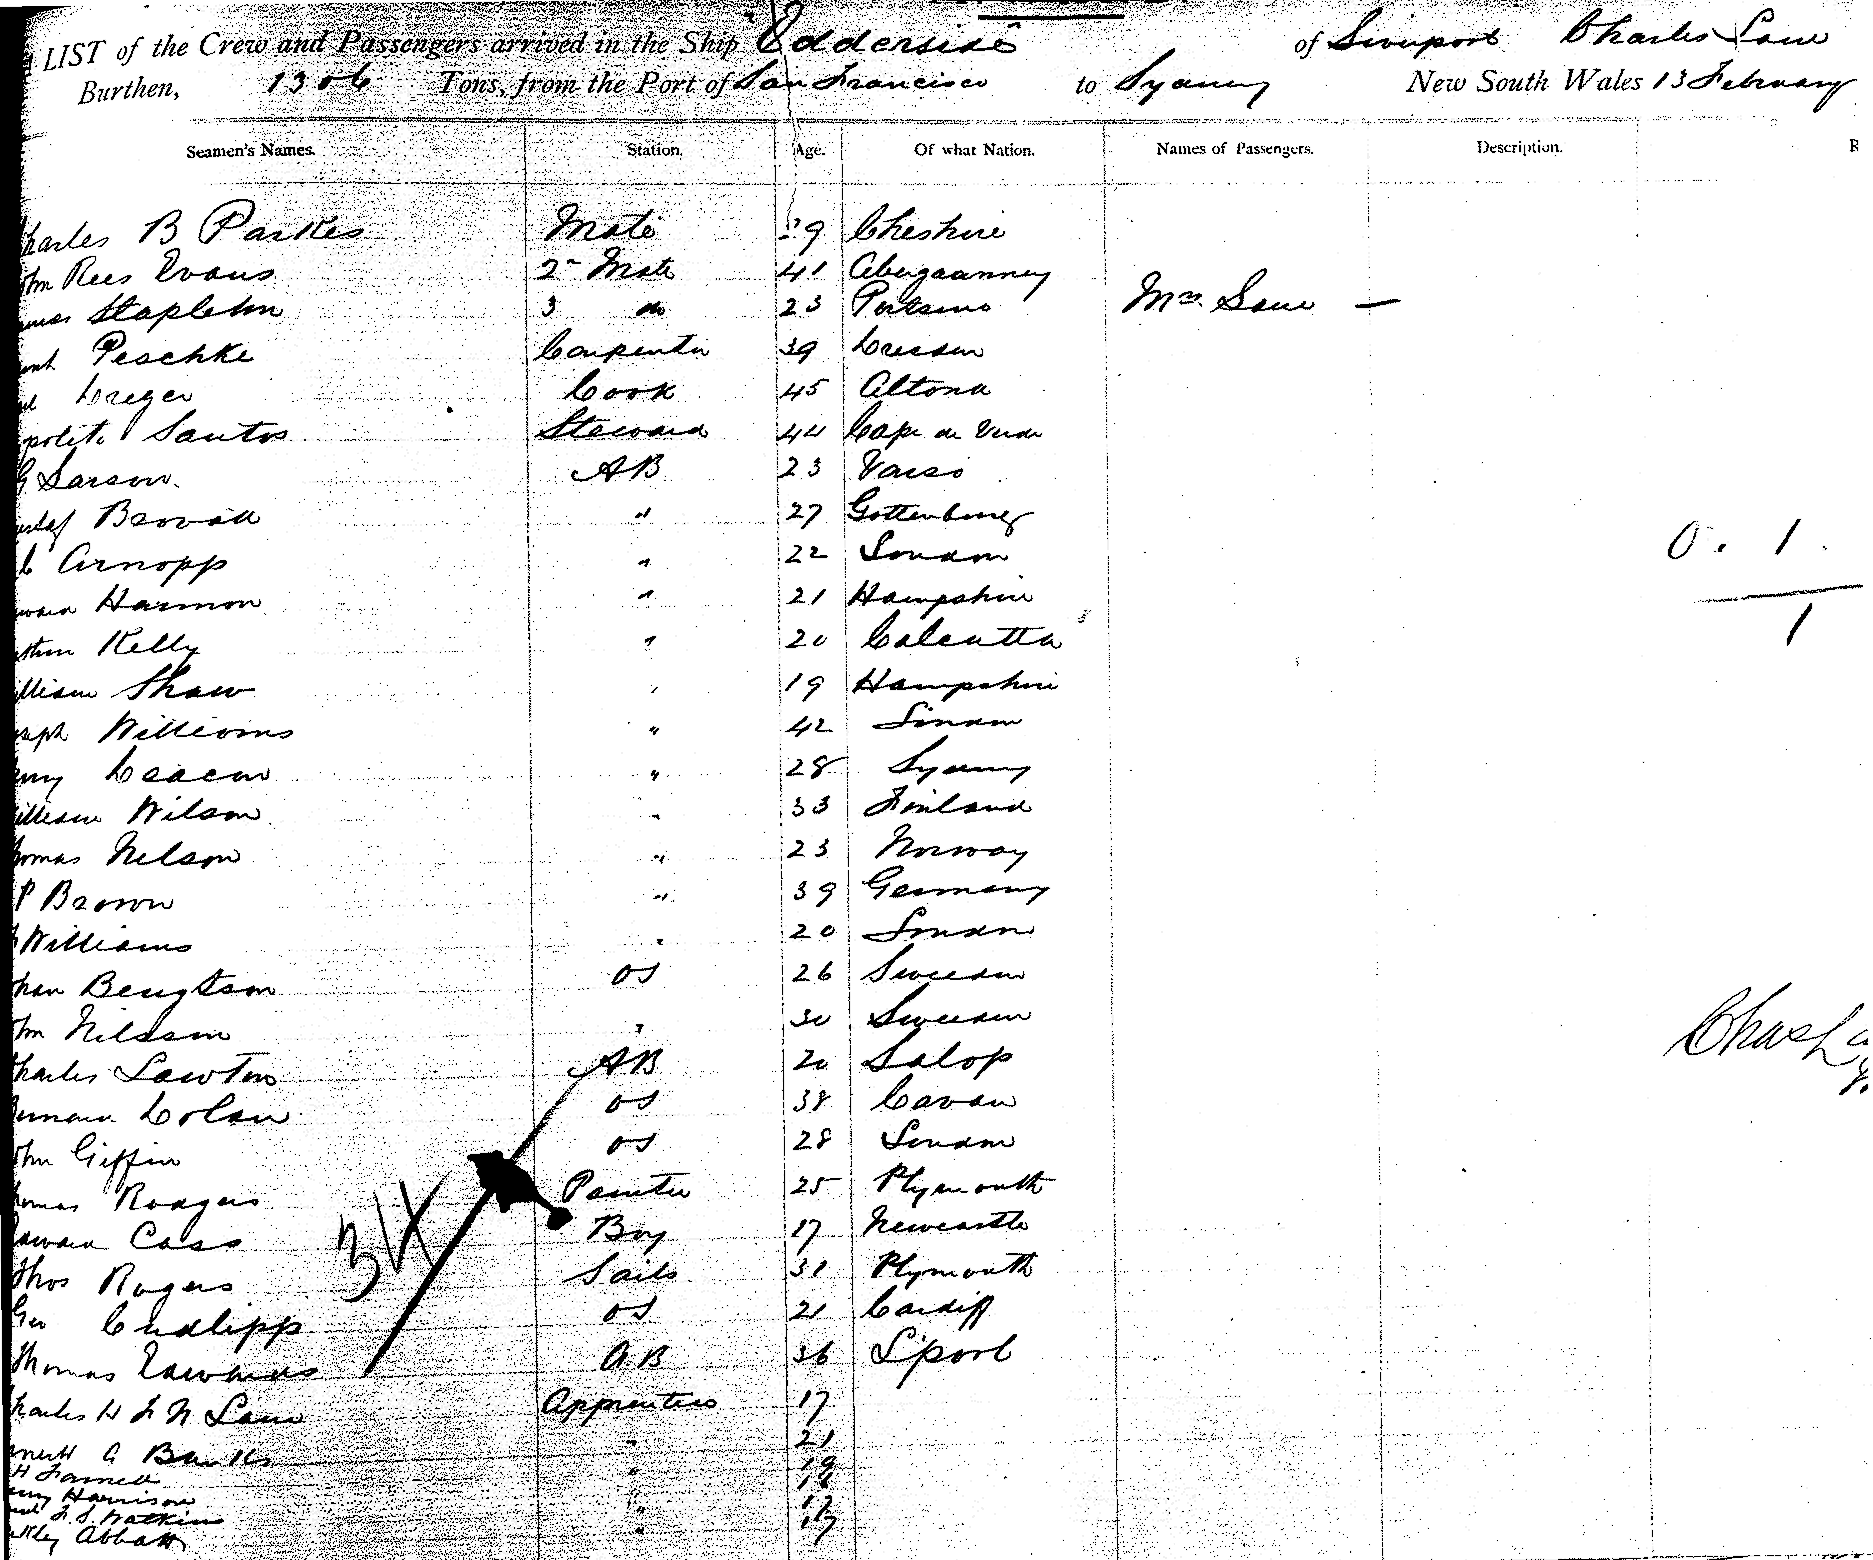 LIST of the Crew and Passengers arrived in the Ship "Edderside of Liverpool Charles Lane
Burthen, 1306 Tons, from the Port of San Francisco to Sydney New South Wales 13 February
Seamen's Names. Station. Age. Of what Nation. Names of Passengers. Description.
harles B Parkes Mate 39 Cheshire
ohn Rees Evans 2nd Mate 41 Abergavenney
Stapleton 3 do 23 Mrs. Lane —
Peschke Carpenter 39 Dresden
Dreger Cook 45 Altona
polite Santos Steward 44 Cape de Verde
G Larson. AB 23
ustaf " 27 Gottenburg
C Arnopp " 22 London
dward Harmon " 21 Hampshire
0. 1.
rthur Kelly " 20 Calcutta
1
illiam Shaw " 19 Hampshire
oseph Williams " 42 London
enry Deacon " 28 Sydney
illiam Wilson " 33 Finland
homas Nelson " 23 Norway
P Brown " 39 Germany
Williams " 20 London
ohan Bengtson OS 26 Sweden
ohn Nilsson " 30 Sweden
Chas La
harles Lawton AB 20 Salop
ernard Dolan OS 38 Cavan
ohn Giffin OS 28 London
homas Rodgers Painter 25 Plymouth
dward Cass Boy 17 Newcastle
Thos Rogers Sails 31 Plymouth
Geo Cudlipp OS 21 Cardiff
Thomas AB 36 L'pool
harles H F N Lane Apprentice 17
A Banks " 21
H Farnell " 19
enry Harrison " 18
F. S. Watkins " 17
Abbott " 17